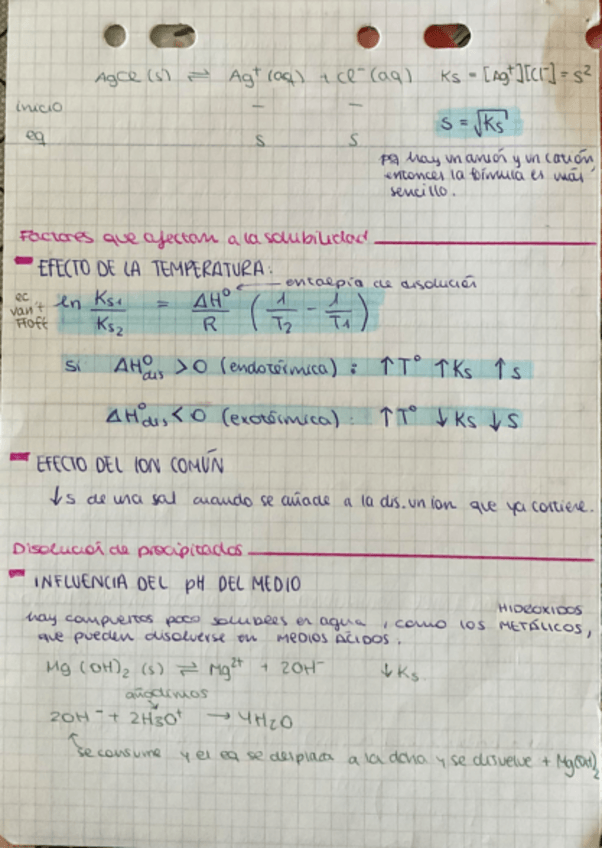 AgCl (s) ⇌ Ag⁺ (aq) + Cl⁻ (aq) Ks = [Ag⁺][Cl⁻] = s²
inicio — —
eq s s
s = √Ks
pq hay un anión y un catión,
entonces la fórmula es más
sencillo.
Factores que afectan a la solubilidad
EFECTO DE LA TEMPERATURA:
entalpía de disolución
ec van't Hoff ln Ks1/Ks2 = ΔH°/R (1/T2 - 1/T1)
Si ΔH°dis > 0 (endotérmica): ↑T° ↑Ks ↑s
ΔH°dis < 0 (exotérmica): ↑T° ↓Ks ↓s
EFECTO DEL ION COMÚN
↓s de una sal cuando se añade a la dis. un ion que ya contiene.
Disolución de precipitados
INFLUENCIA DEL pH DEL MEDIO
hay compuestos poco solubles en agua, como los HIDROXIDOS METÁLICOS,
que pueden disolverse en MEDIOS ÁCIDOS.
Mg(OH)₂ (s) ⇌ Mg²⁺ + 2OH⁻ ↓Ks
añadimos
2OH⁻ + 2H3O⁺ → 4H2O
se consume y el eq se desplaza a la dcha y se disuelve + Mg(OH)₂